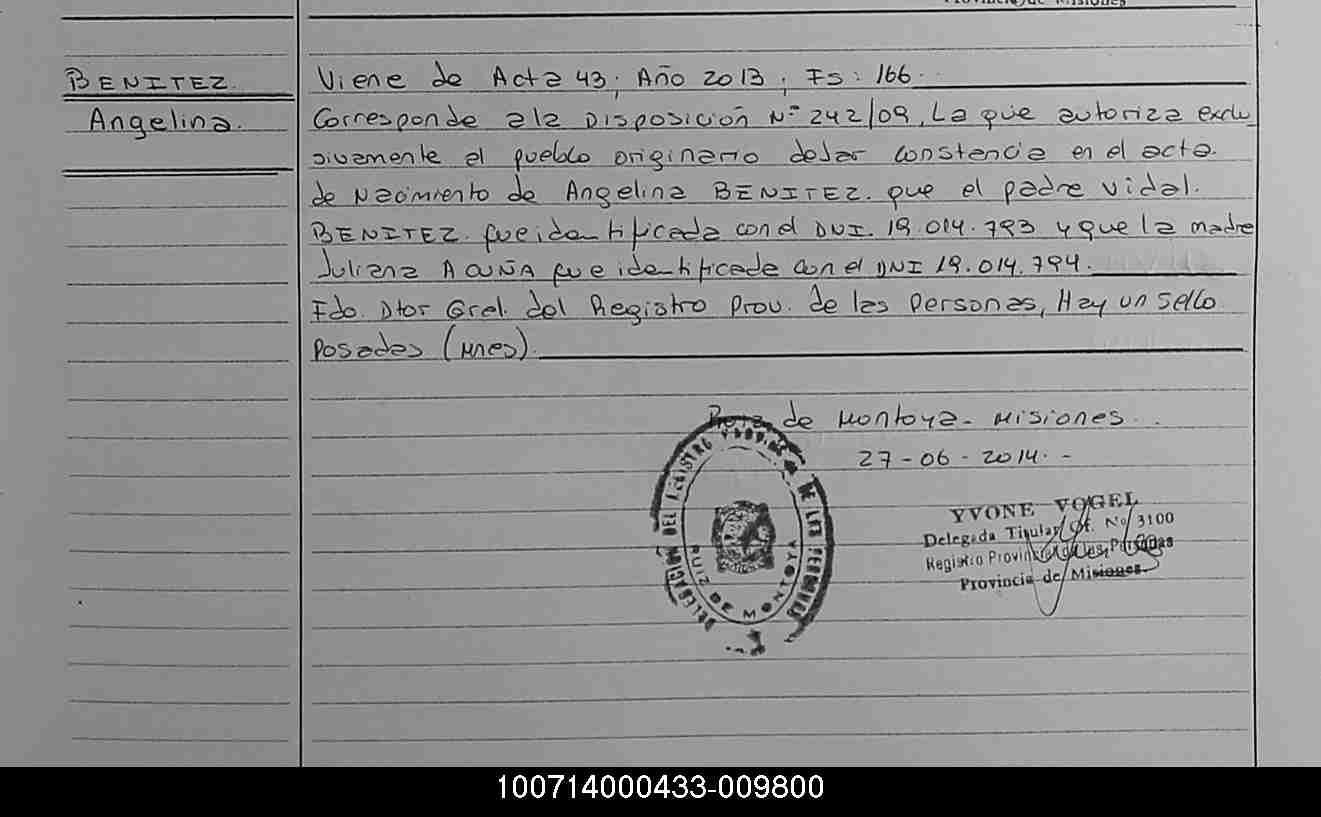 Provincia de Misiones
BENITEZ.
Angelina.
Viene de Acta 43; Año 2013; Fs: 166.
Corresponde a la Disposición Nº 242/09, La que autoriza exclu_
sivamente al pueblo originario dejar constancia en el acta.
de Nacimiento de Angelina BENITEZ. que el padre Vidal.
BENITEZ. fue identificada con el DNI. 19.014.793 y que la madre
Juliana ACUÑA fue identificada con el DNI 19.014.794.
Fdo. Dtor Gral. del Registro Prov. de las Personas, Hay un sello
Posadas (Mnes).
de Montoya - Misiones.
27-06-2014.-
DELEGACION DEL REGISTRO PROVINCIAL DE LAS PERSONAS
RUIZ DE MONTOYA
YVONE VOGEL
Delegada Titular Of. Nº 3100
Registro Provincial de las Personas
Provincia de Misiones
100714000433-009800